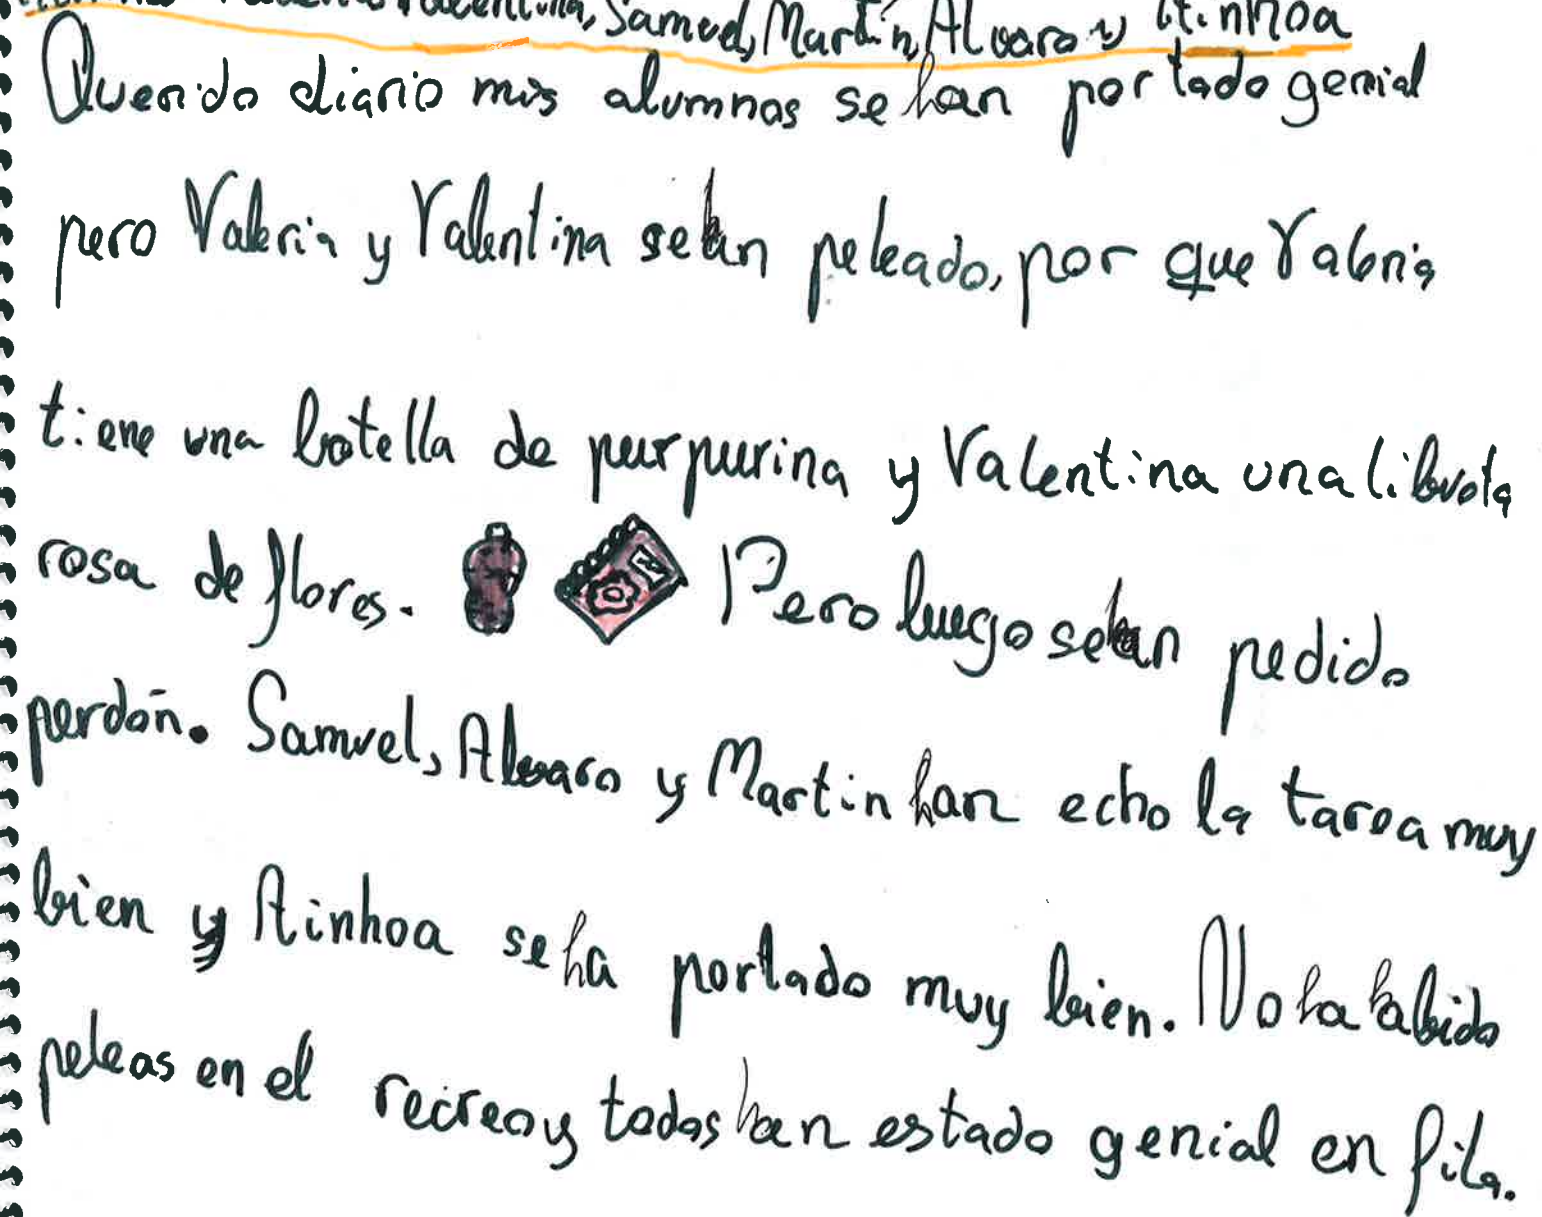 Valentina, Samuel, Martín, Alvaro y Ainhoa
Querido diario mis alumnos se han portado genial
pero Valeria y Valentina sehan peleado, por que Valeria
tiene una botella de purpurina y Valentina una libreta
rosa de flores. Pero luego sehan pedido
perdón. Samuel, Alvaro y Martin han echo la tarea muy
bien y Ainhoa se ha portado muy bien. No ha habido
peleas en el recreo y todos han estado genial en fila.